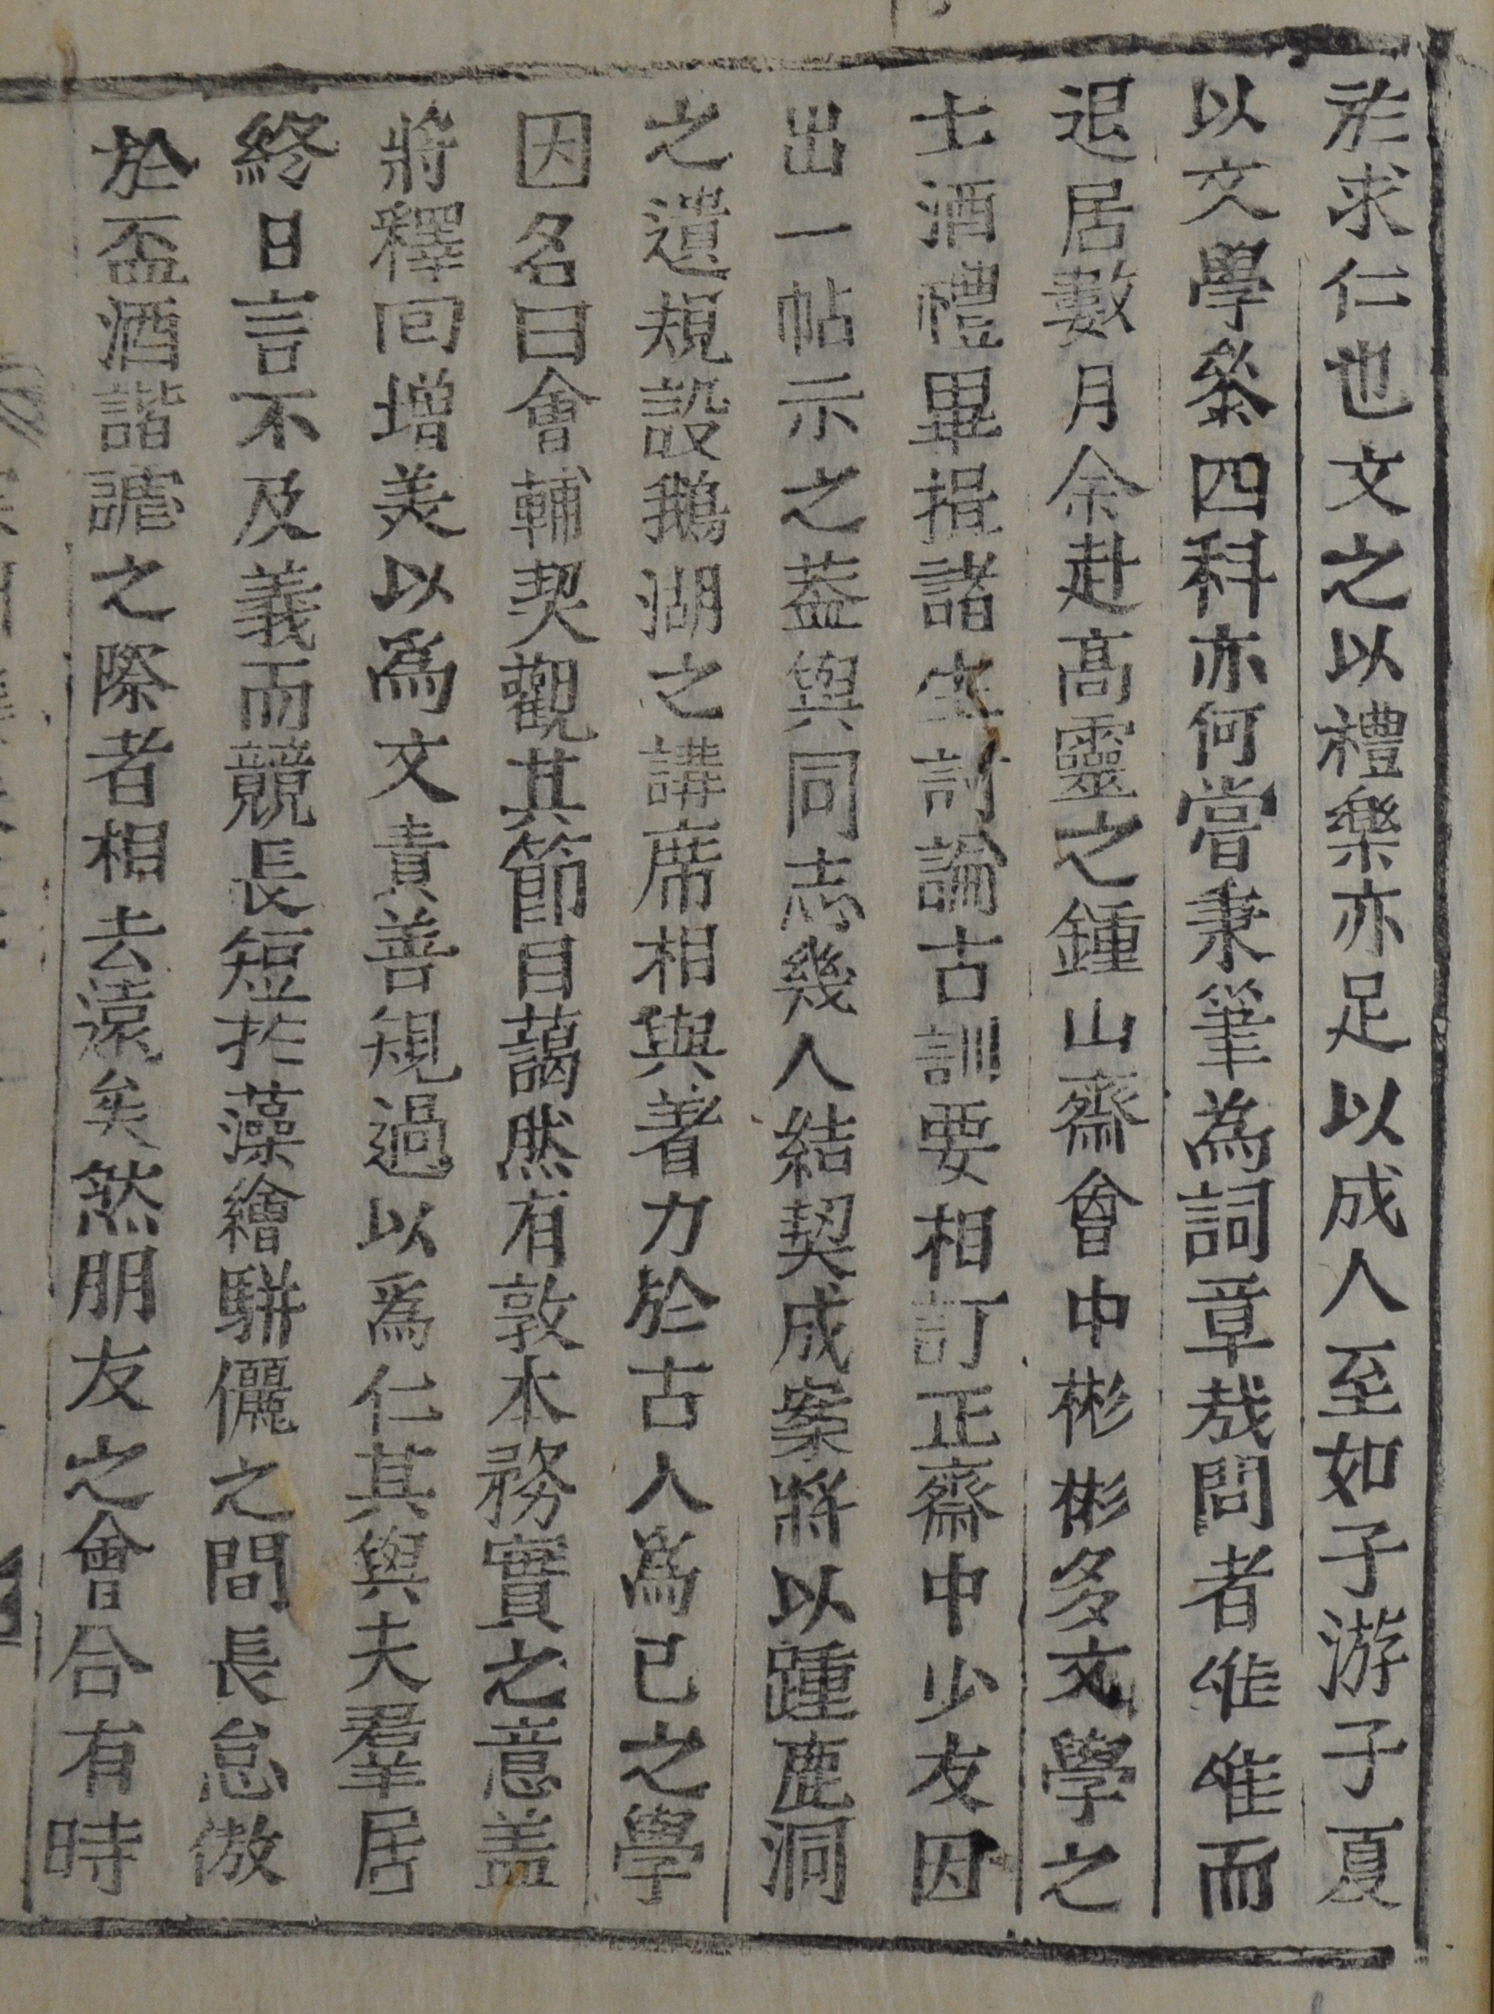 於求仁也文之以禮樂亦足以成人至如子游子夏
以文學叅四科亦何嘗秉筆為詞章哉問者唯唯而
退居數月余赴高靈之鍾山齋會中彬彬多文學之
士酒禮畢揖諸生討論古訓要相訂正齋中少友因
出一帖示之葢與同志幾人結契成案將以踵鹿洞
之遺規設鵝湖之講席相與著力於古人爲已之學
因名曰會輔契觀其節目藹然有敦本務實之意盖
將釋回增美以爲文責善規過以爲仁其與夫羣居
終日言不及義而競長短於藻繪騈儷之間長怠傲
於盃酒諧謔之際者相去遠矣然朋友之會合有時